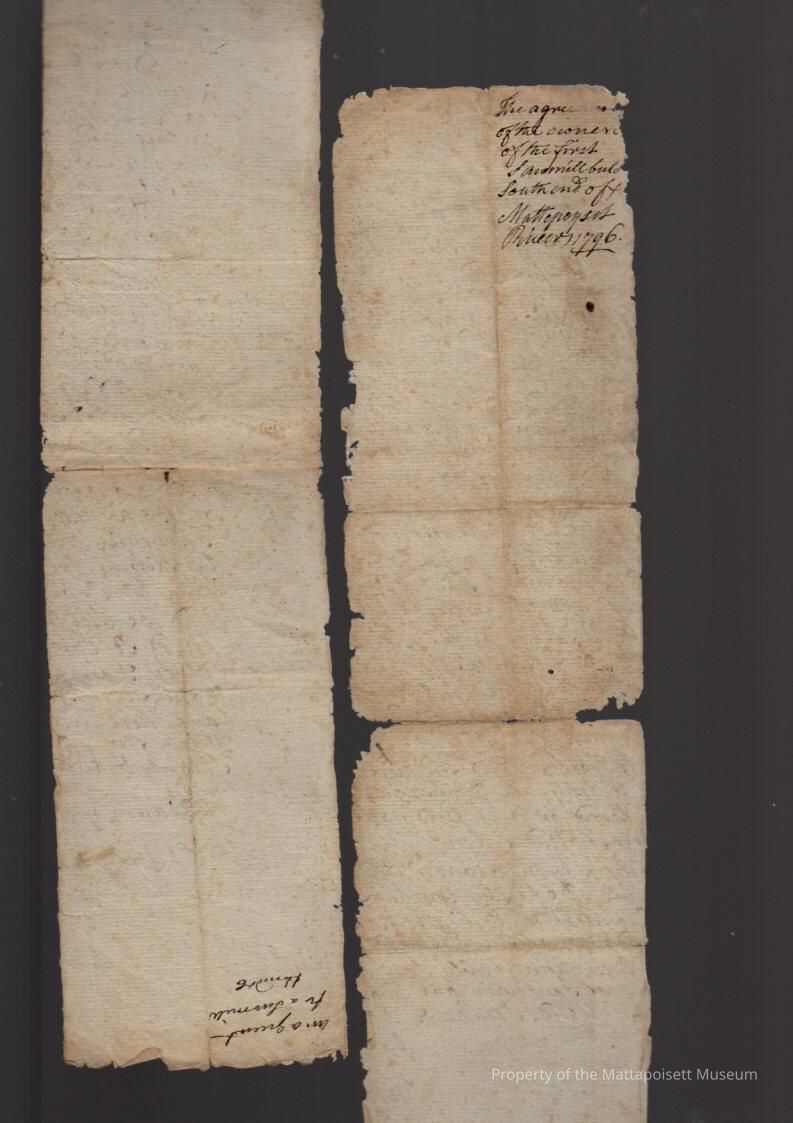 The agre
of the owners
of the first
Sawmill bul
South end of
Mattepoyset
River 1796.
an agreemt
for a Sawmill
Property of the Mattapoisett Museum